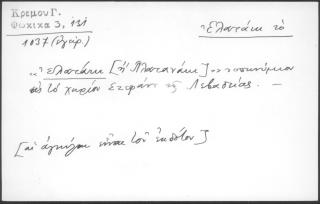 Κρέμου Γ.
Φωκικά 3, 131
1037 (ἔγγρ.)
Ἐλατάκι τὸ
«Ἐλατάκι [ἢ Πλατανάκι]» τοπωνύμιον
εἰς τὸ χωρίον Στεφάνι τῆς Λεβαδείας. —
[αἱ ἀγκύλαι εἶναι τοῦ ἐκδότου]